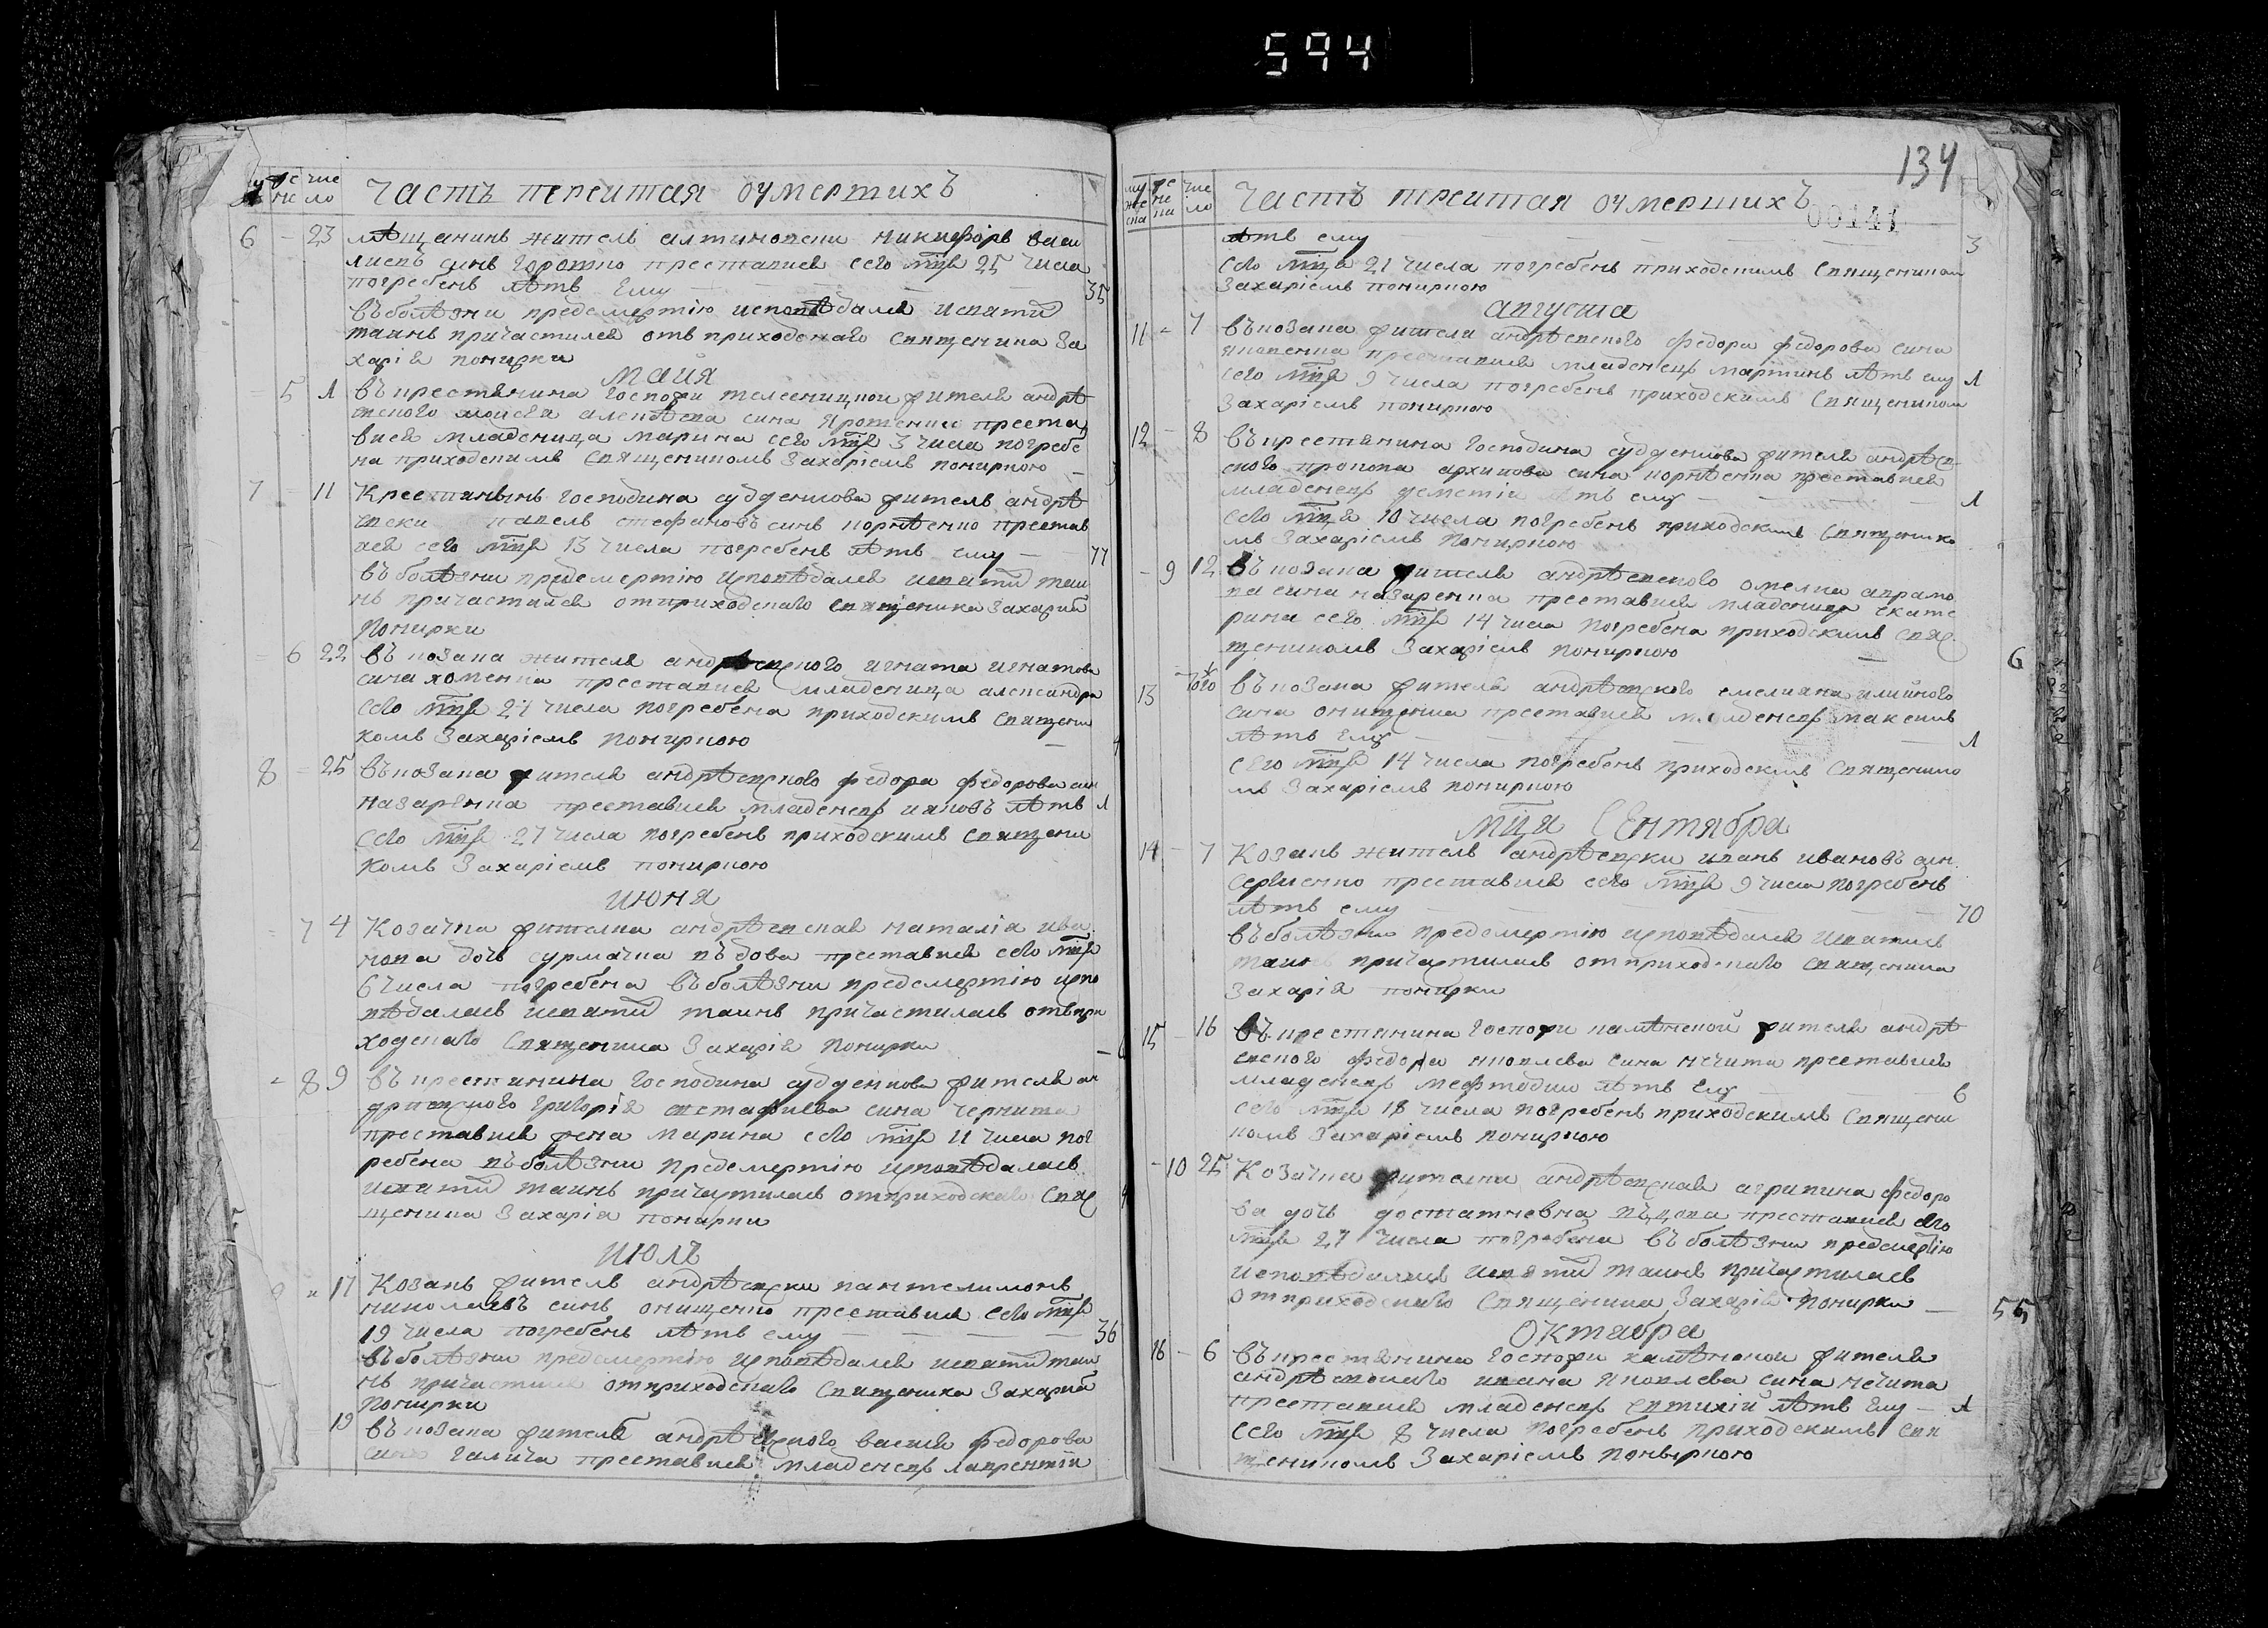 594
134
00141
му же чис
не ло
Часть третитая оумертихъ
6 - 23 мѣщанинъ житель алтиновски никифоръ васи
лиевъ синъ горотно преставися сего мца 25 числа
погребенъ лѣтъ ему 35
въ болѣзни предсмертію исповѣдался исвятй
таинъ причастился отъ приходскаго священика За
харія понирки
Маия
- 5 1 въ крестянина госпожи жителя андрѣ
вского моисея алексѣева сина преста
вися младеница марина сего мца 3 числа погребе
на приходскимъ священикомъ Захаріемъ пониркою
7 - 11 Крестянинъ господина судденкова житель андрѣ
евски павелъ стефановъ синъ корнѣенко престав
ися сего мца 13 числа погребенъ лѣтъ ему 77
въ болѣзни предсмертію исповѣдался исвятй таи
нъ причастился отприходскаго священика Захарий
Понирки
- 6 22 въ козака жителя андрѣевского игната игнатова
сина хоменка преставися младеница александра
сего мца 24 числа погребена приходскимъ священи
комъ Захаріемъ пониркою
8 - 25 въ козака жителя андрѣевского федора федорова син
назаренка преставися младенецъ иаковъ лѣтъ 1
сего мца 27 числа погребенъ приходскимъ священи
комъ Захаріемъ пониркою
июня
- 7 4 Козачка жителка андрѣевская наталія ива
нова дочь сурмачка въдова преставися сего мца
6 числа погребена въ болѣзни предсмертію испо
вѣдалась исвятй таинъ причастилась отъ при
ходскаго священика Захарія понирки
- 8 9 въ крестянина господина судденкова жителя ан
дриевского григорія евстафиева сина
преставися жена марина сего мца 11 числа пог
ребена въ болѣзни предсмертію исповѣдалась
исвятй таинъ причастилась отприходскаго свя
щеника Захарія понирки
июль
9 " 17 Козакъ житель андрѣевски пантелимонъ
николаевъ синъ онищенко преставися сего мца
19 числа погребенъ лѣтъ ему 36
въ болѣзни предсмертію исповѣдался исвятй таи
нъ причастился отприходскаго священика Захарий
понирки
19 въ козака жителя андрѣевского василя федорова
сина галича преставися младенецъ лаврентій
му же чис
же не ло
ска ска
Часть третитая оумершихъ
лѣтъ ему 3
сего мца 21 числа погребенъ приходскимъ священиком
Захаріемъ пониркою
августа
11 - 7 въ козака жителя андрѣевского федора федорова сина
яковенка преставися младенецъ мартинъ лѣтъ ему 1
сего мца 9 числа погребенъ приходскимъ священиком
Захаріемъ пониркою
12 - 8 въ крестянина господина судденкова жителя андрѣев
ского прокопа архипова сина корнѣенка преставися
младенецъ лѣтъ ему 1
сего мца 10 числа погребенъ приходскимъ священико
мъ Захаріемъ пониркою
- 9 12 въ козака жителя андрѣевского омелка аврамо
ва сина назаренка преставися младеница екате
рина сего мца 14 числа погребена приходскимъ свя
щеникомъ Захаріемъ пониркою 6
13 того въ козака жителя андрѣевского емелияна илиного
сина онищенка преставися младенецъ максимъ
лѣтъ ему 1
сего мца 14 числа погребенъ приходскимъ священико
мъ Захаріемъ пониркою
мца Сентября
14 - 7 Козакъ житель андрѣевски иванъ ивановъ син
сергиенко преставися сего мца 9 числа погребенъ
лѣтъ ему 70
въ болѣзни предсмертію исповѣдался исвятихъ
таинъ причастилься отприходскаго священика
Захарія понирки
15 - 16 въ крестянина госпожи калѣнской жителя андрѣ
евского федора яковлева сина нечита преставися
младенецъ мефтодии лѣтъ ему 6
сего мца 18 числа погребенъ приходскимъ священи
комъ Захаріемъ пониркою
- 10 25 Козачка жителка андрѣевская агрипина федоро
ва дочь достатневна въдова преставися сего
мца 27 числа погребена въ болѣзни предсмертію
исповѣдалися исвятй таинъ причастилась
отприходскаго священика Захарія понирки 55
Октября
16 - 6 въ крестянина госпожи калѣнской жителя
андрѣевского ивана яковлева сина нечита
преставися младенецъ евтихій лѣтъ ему 1
сего мца 8 числа погребенъ приходскимъ свя
щеникомъ Захаріемъ поныркою